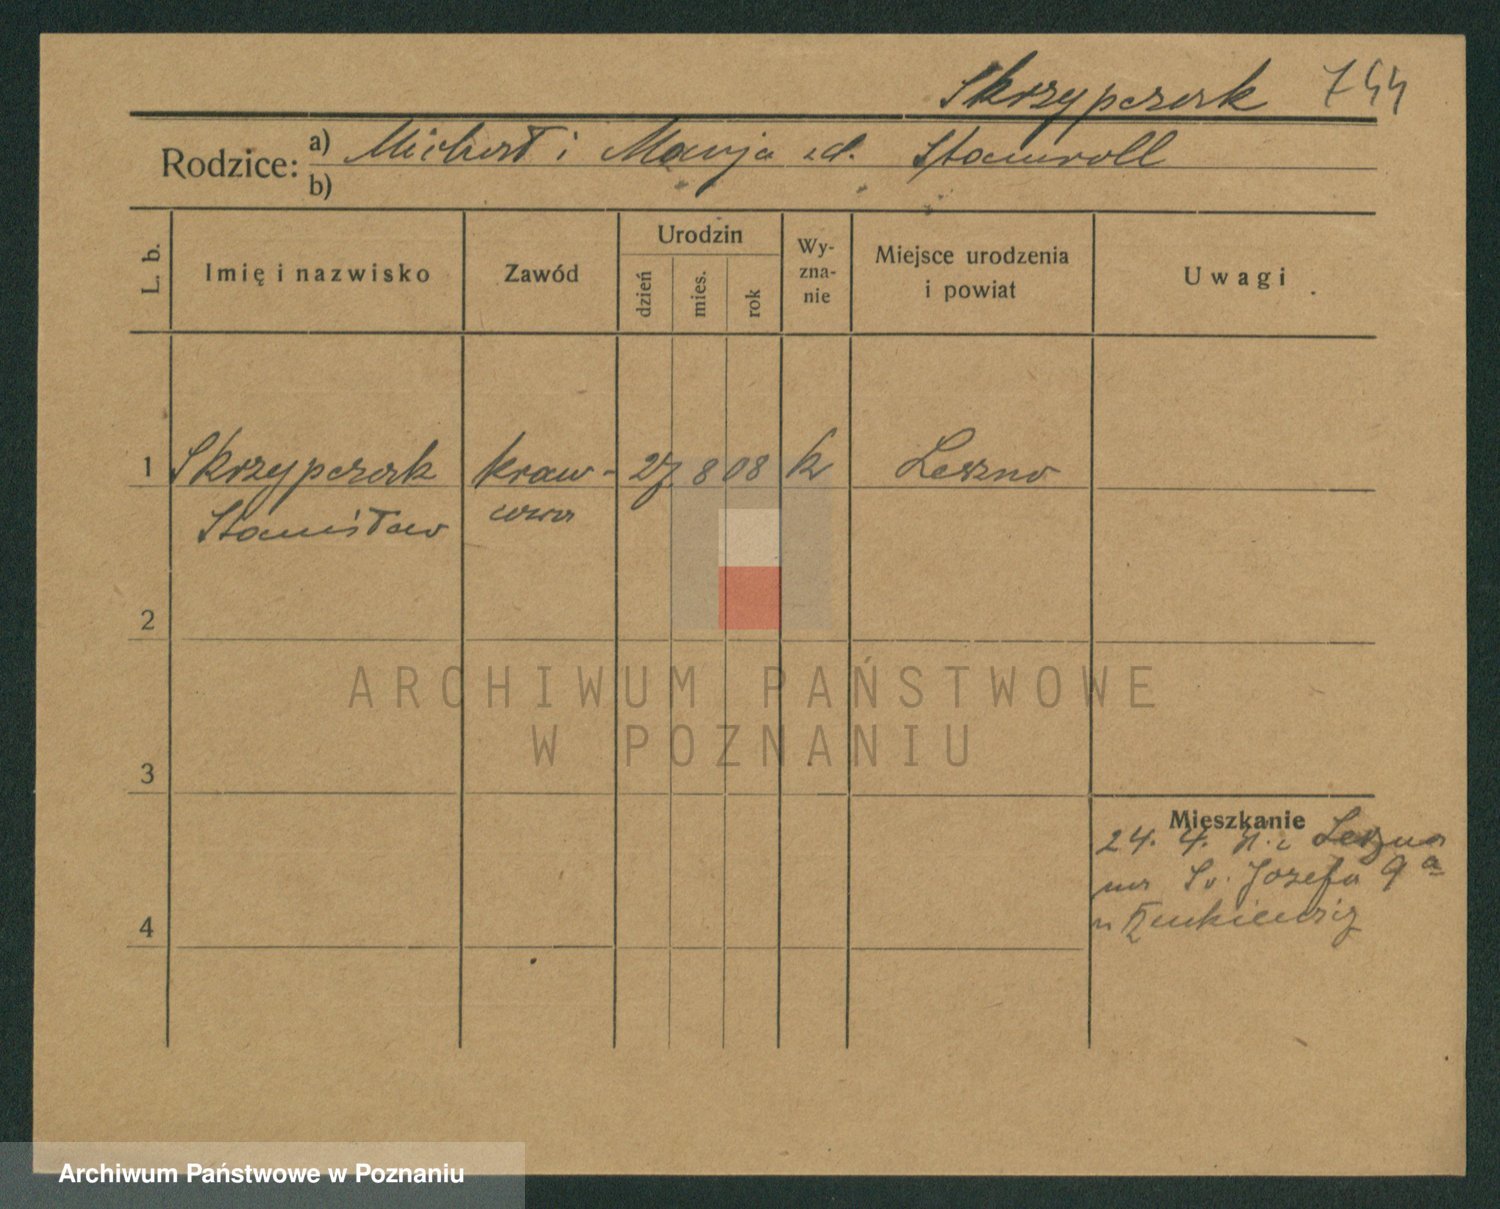 Skrzypczak 744
Rodzice: a) Michał i Marja zd.
b)
L. b. Imię i nazwisko Zawód Urodzin dzień mies. rok Wy-zna-nie Miejsce urodzenia i powiat Uwagi
1 Skrzypczak kraw- 27 8 08 k Leszno
Stanisław cowa
2
ARCHIWUM PAŃSTWOWE
W POZNANIU
3
Mieszkanie
24. 4. Leszno
Józefa 9a
4
Archiwum Państwowe w Poznaniu